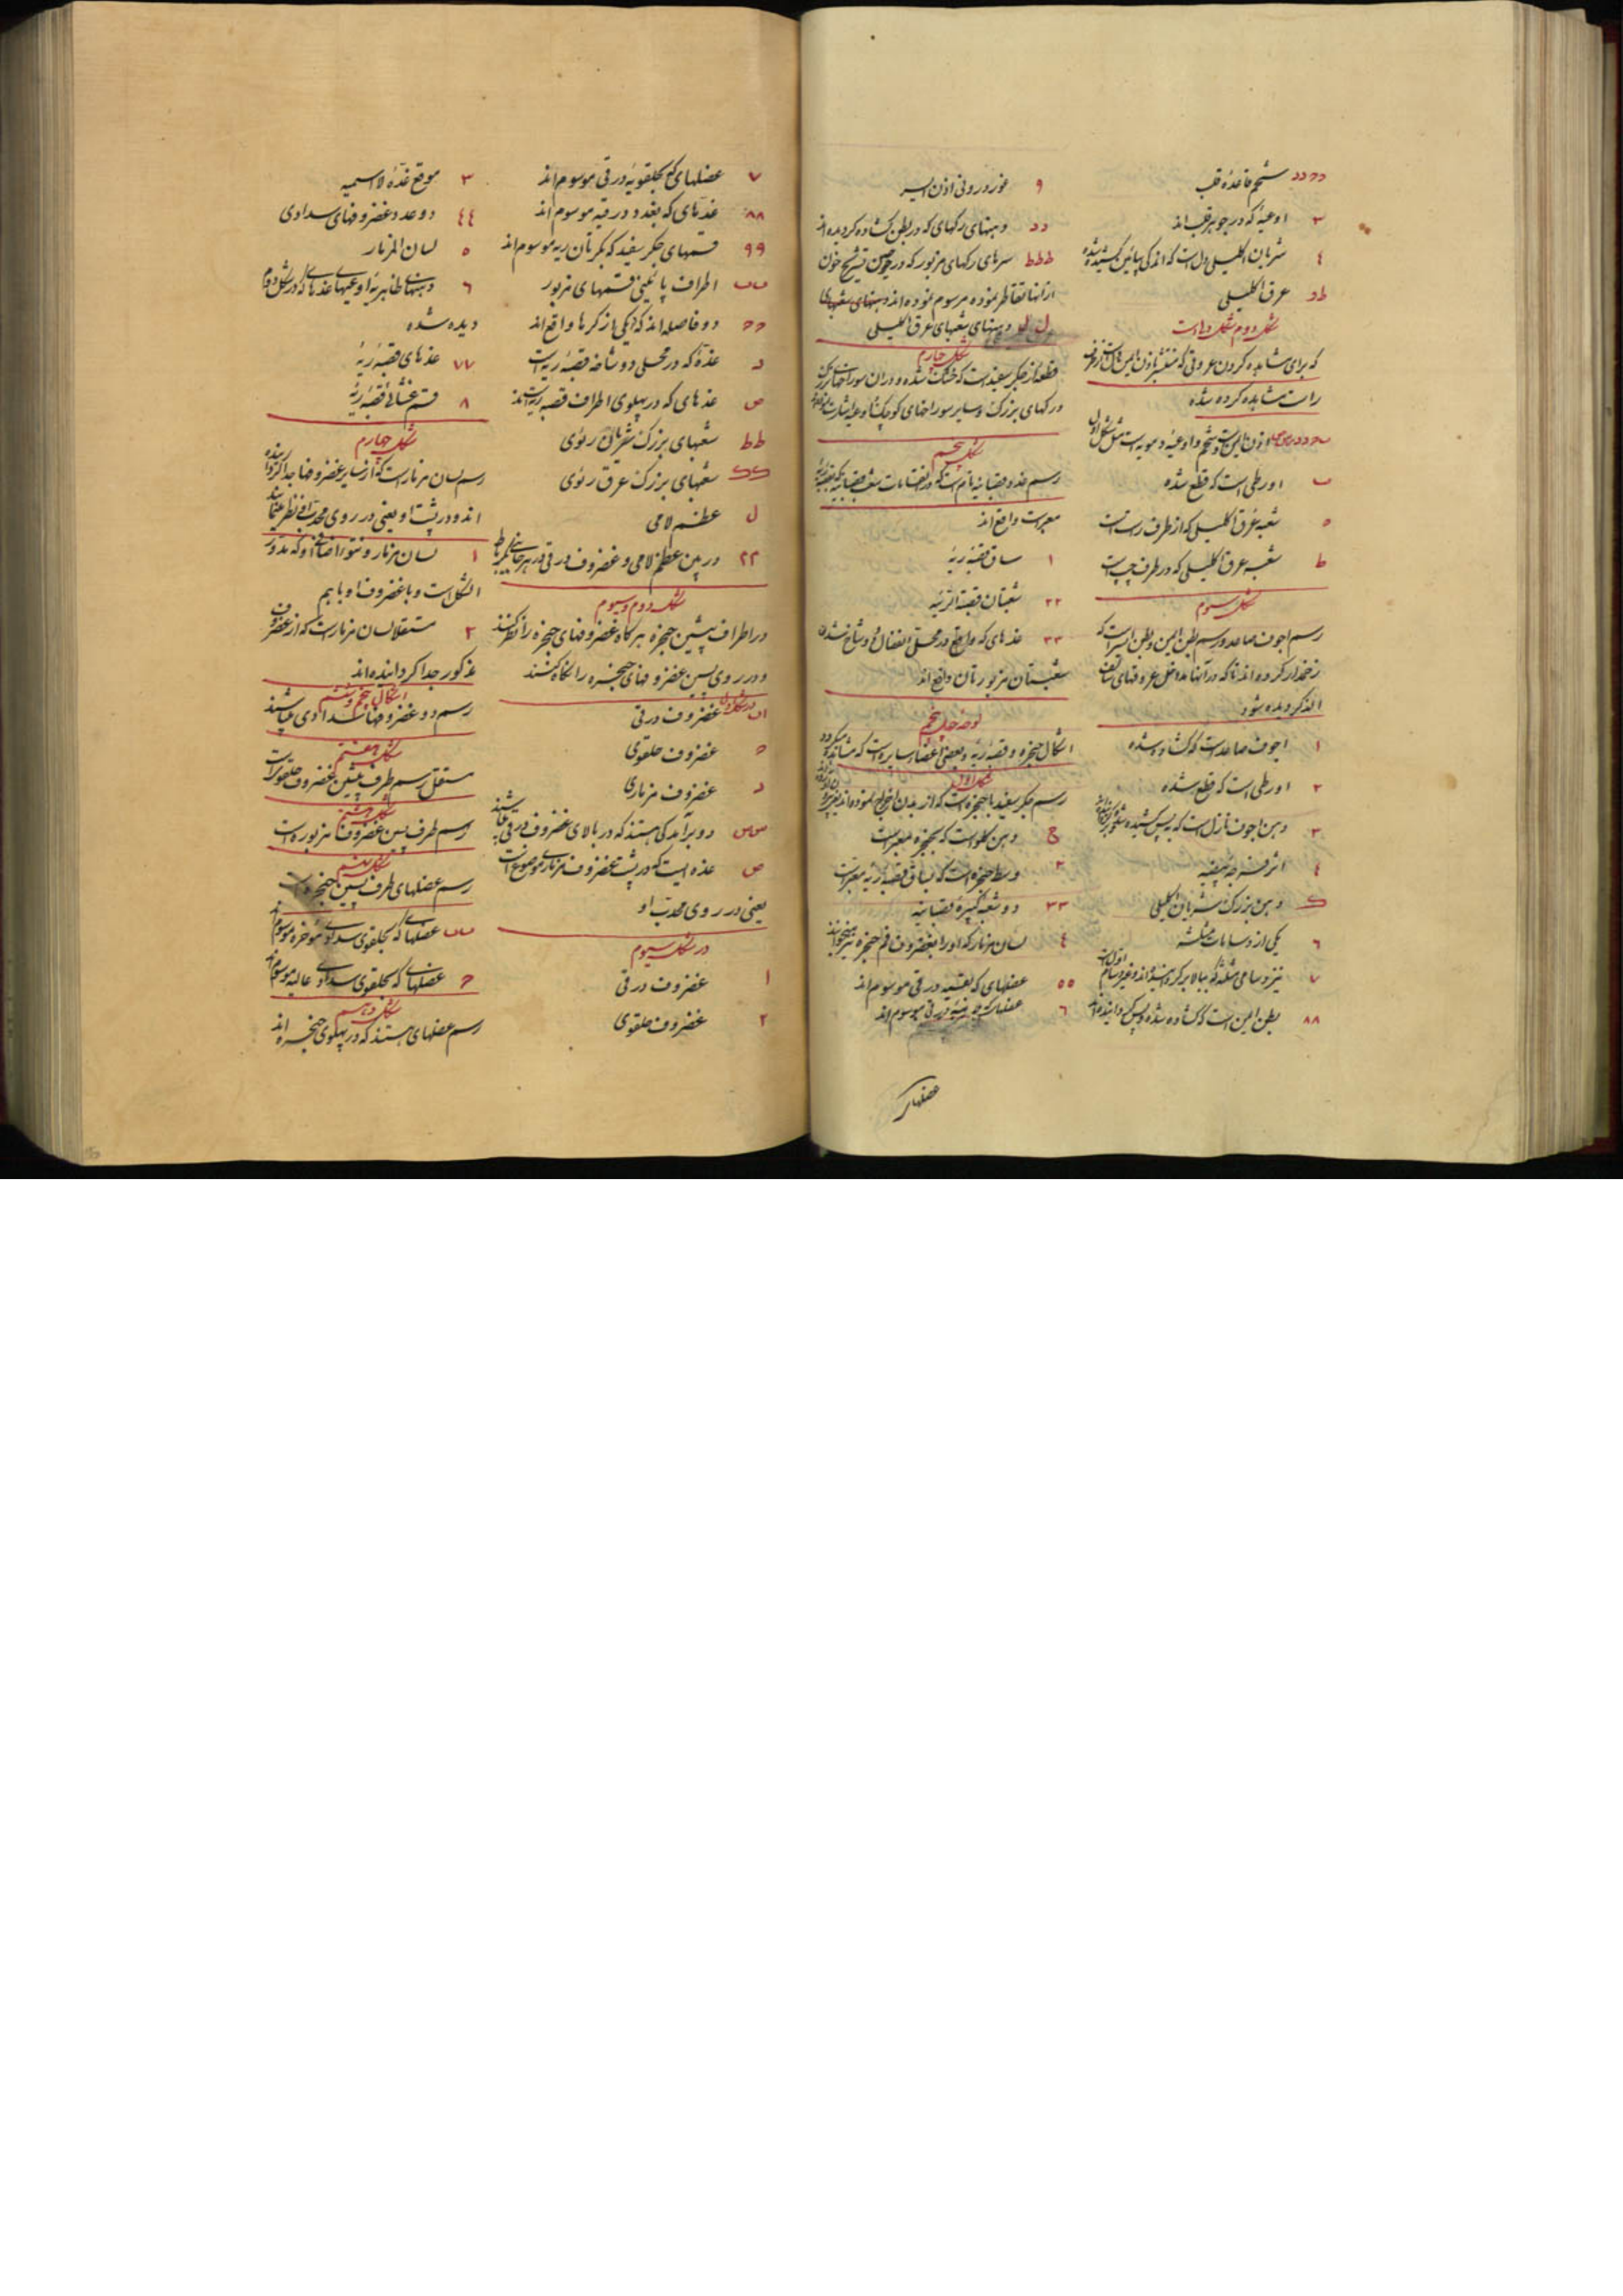 دد دد شحم قاعدهٔ قلب
٣ اوعیهٔ که در جوهر قلب اند
٤ شریان اکلیلی اول است که اندکی پائین کشیده شده
ط د عرق اکلیلی
شکل دوم شکل دل است
که برای مشاهده کردن عروقی که
راست مشاهده کرده شده
اذن ایمن است و شحم و اوعیهٔ دمویه است مثل شکل اول
ب اورطی است که قطع شده
ه شعبه عرق اکلیلی که از طرف راست است
ط شعبه عرق اکلیلی که در طرف چپ است
شکل سیوم
رسم اجوف صاعد و رسم بطن ایمن و بطن ایسر است که
زخمدار کرده اند تا که در آنها مداخل عروقهای سالف
الذکر دیده شود
١ اجوف صاعد است که گشاده شده
٢ اورطی است که قطع شده
٣ دهن اجوف نازل است که به پس کشیده
٤ اثر فرجه بیضیه
ک دهن بزرگ شریان اکلیلی
٦ یکی از دسامات مثلثه
٧ نیز دسامی مثلثه که ببالا برکردانیده اند
٨٨ بطن ایمن است که گشاده شده و پس گردانیده اند
٩ غور درونی اذن ایسر
دد دهنهای رگهای که در بطن گشاده گردیده اند
ططط سرهای رگهای مزبور که در حین تشریح خون
از آنها تقاطر نموده مرسوم نموده اند دهنهای شعبهای
ل ل دهنهای شعبهای عرق اکلیلی
شکل چهارم
قطعهٔ از جگر سفید است که خشک شده و در آن سوراخهای
و رگهای بزرگ و سایر سوراخهای کوچک
شکل پنجم
رسم غدد قصبانیه تام است که در انقسامات شعب قصبانیه که بقصبه ریه
معبر است واقع اند
١ ساق قصبهٔ ریه
٢٢ شعبتان قصبة الریه
٣٣ غدهای که واقع در محل انفصال و دو شاخ شدن
شعبتان مزبورتان واقع اند
لوحه چهل پنجم
اشکال حنجره و قصبهٔ ریه و بعضی اعضاء سایره است که مشاهده میگردد
شکل اول
رسم جگر سفید با حنجره است که از بدن اخراج نموده اند
ج دهن گلو است که بحنجره معبر است
٢ وسط حنجره است که بساق قصبهٔ ریه معبر است
٣٣ دو شعبهٔ کبیرهٔ قصبانیه
٤ لسان مزمار که او را بغضروف فم حنجره نیز میخوانند
٥٥ عضلهای که بقصیه درقی موسوم اند
٦ عضلات درقی موسوم اند
عضلهای
٧ عضلهای که بحلقویه درقی موسوم اند
٨٨ غدهای که بغدد درقیه موسوم اند
٩٩ قسمهای جگر سفید که بکرتان ریه موسوم اند
ب ب اطراف پائینی قسمهای مزبور
حح دو فاصله اند که یکی از کرها واقع اند
د غدهٔ که در محل دو شاخه قصبهٔ ریه است
ص غدهای که در پهلوی اطراف قصبه ریه اند
طط شعبهای بزرگ شریان ریوی
کک شعبهای بزرگ عرق ریوی
ل عظم لامی
٢٢ در بین عظم لامی و غضروف درقی در هر جانبی یک رباط
شکل دوم و سیوم
در اطراف پیشین حنجره هرگاه غضروفهای حنجره را نظر کنند
و در روی پسین غضروفهای حنجره را نگاه کنند
اب غضروف درقی
ح غضروف حلقوی
د غضروف مزماری
س س دو برآمدگی هستند که در بالای غضروف درقی میباشند
ص غده ایست که در پشت غضروف مزماری موضوع است
یعنی در روی محدب او
در شکل سیوم
ا غضروف درقی
٢ غضروف حلقوی
٣ موقع غدهٔ لاسمیه
٤٤ دو عدد غضروفهای سدادی
٥ لسان المزمار
٦ دهنهای ظاهریهٔ اوعیهای غدهای که در شکل دوم
دیده شده
٧٧ غدهای قصبهٔ ریه
٨ قسم غشائی قصبهٔ ریه
شکل چهارم
رسم لسان مزمار است که از سایر غضروفها جدا کرده
اند و در پشت او یعنی در روی محدب
١ لسان مزمار و نتوء اضافی او که مدور
الشکل است و با غضروف او باهم
٢ مستقلا لسان مزمار است که از غضروف
مذکور جدا گردانیده اند
اشکال پنجم و ششم
رسم دو غضروفهای سدادی میباشند
شکل هفتم
مستقل رسم طرف پیشین غضروف حلقوی است
شکل هشتم
رسم طرف پسین غضروف مزبوره است
شکل نهم
رسم عضلهای طرف پسین حنجره است
ب ب عضلهای که بحلقوی سدادی مؤخره موسوم اند
ح عضلهای که بحلقوی سدادی عالیه موسوم اند
شکل دهم
رسم عضلهای هستند که در پهلوی حنجره اند